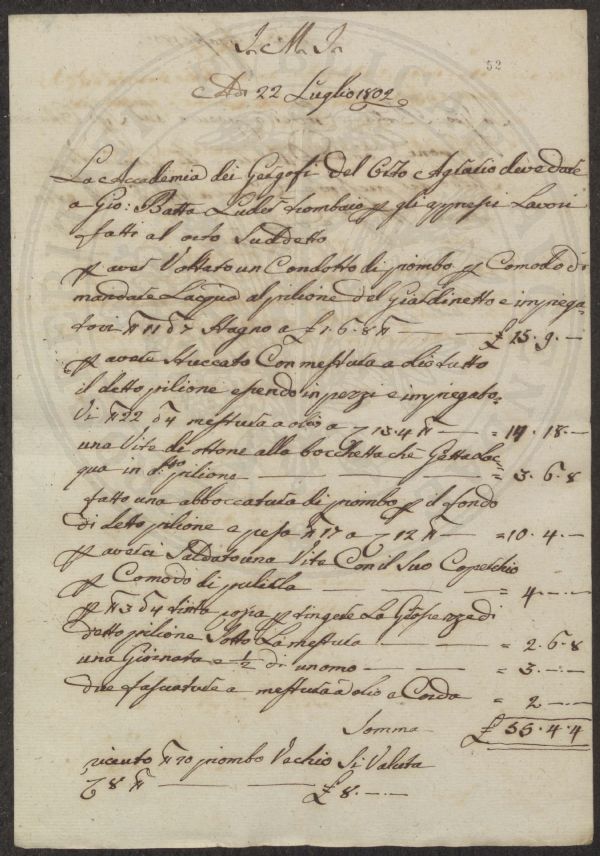 52
Adì 22 Luglio 1802
La Accademia dei Gergofi del Orto Agrario deve dare
a Gio: Batta Luder trombaio p gli appresi Lavori
fatti al orto Suddetto
p aver Voltato un Condotto di piombo p Comodo di
mandare Lacqua al pilione del Giardinetto e impiega-
tovi ℔ 11 d 7 Stagno a £ 1.6.8 ℔ — £ 15.9.—
p avere Stuccato Con mestura a olio tutto
il detto pilione essendo in pezzi e impiegato-
Vi ℔ 22 d 4 mestura a olio a 13.4 ℔ — = 14.18.—
una Vite di ottone alla bocchetta che Getta Lac-
qua in d.tto pilione — = 3.6.8
fatto una abboccatura di piombo p il fondo
di detto pilione e pesa ℔ 17 a 12 ℔ — = 10.4.—
p averci Saldato una Vite Con il Suo Coperchio
p Comodo di pulilla — = 4.—.—
p ℔ 3 d 4 tinta p tingere La
detto pilione Sotto La mestura — = 2.6.8
una Giornata e ½ di unomo — = 3.—.—
due fasciature a mestura a olio e Corda = 2.—.—
Somma £ 55.4.4
riceuto ℔ 20 piombo Vechio Si Valuta
8 ℔ — £ 8.—.—